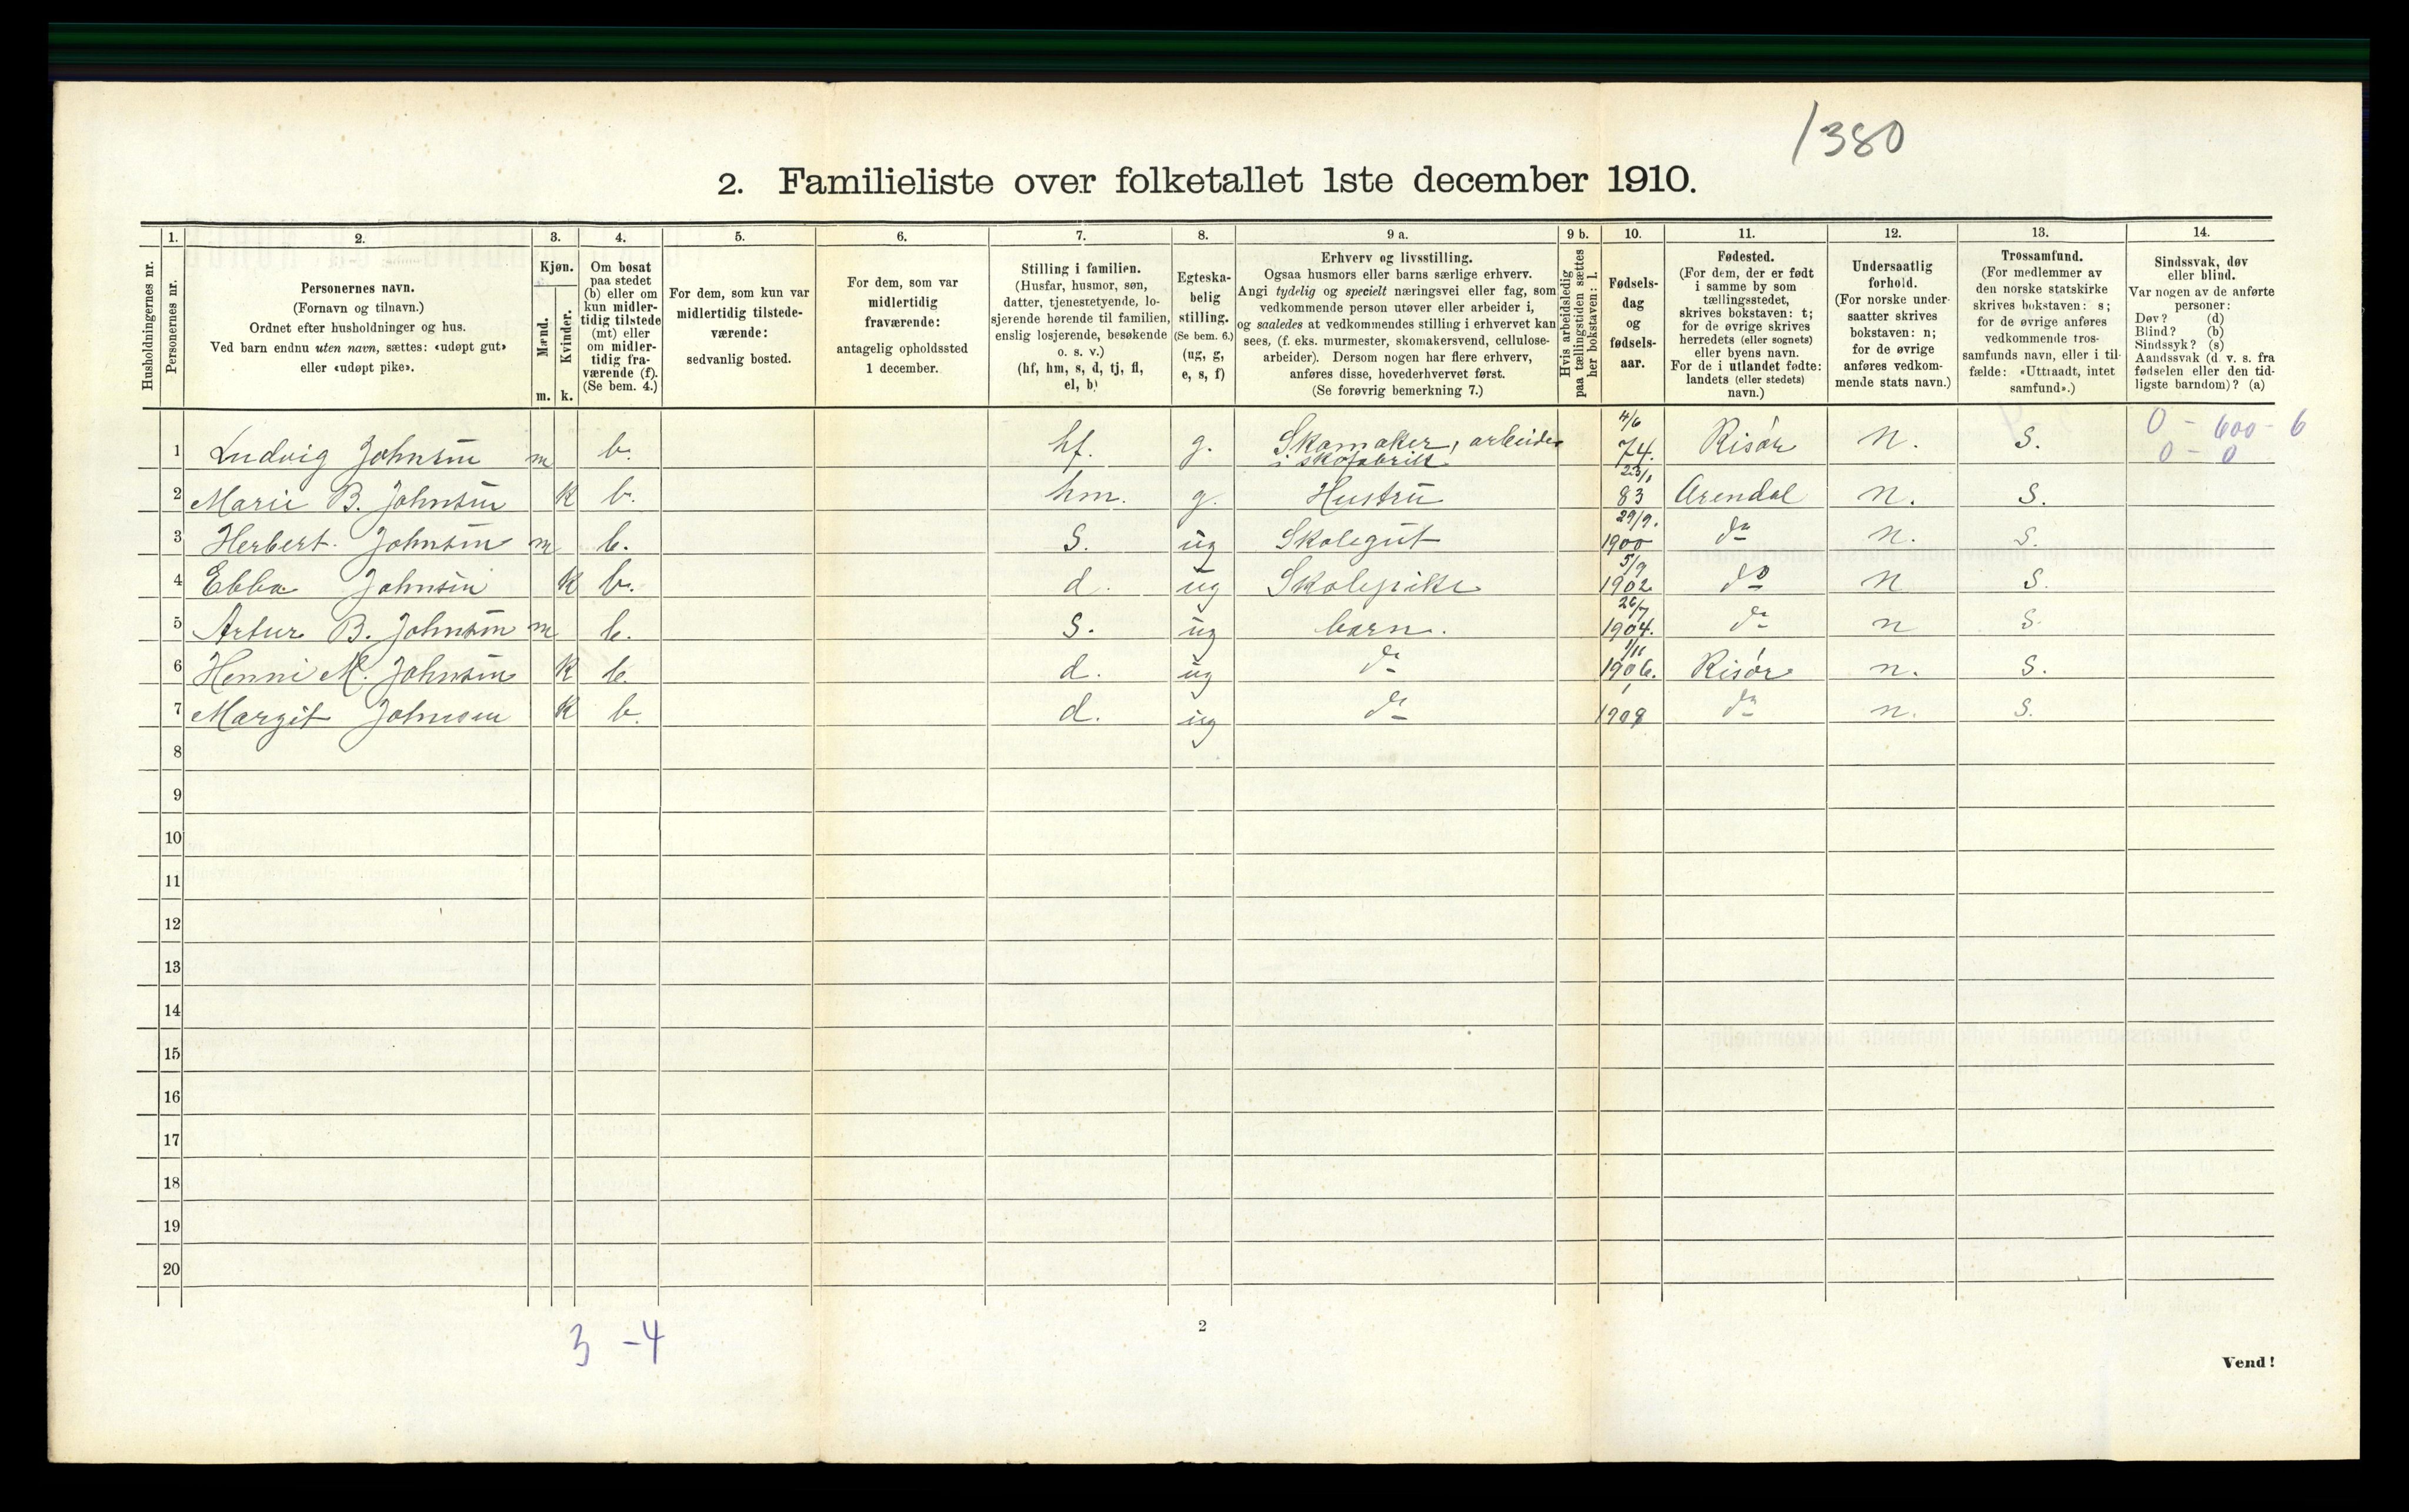 1380
2. Familieliste over folketallet 1ste december 1910.
Husholdningernes nr.
1. Personernes nr.
2. Personernes navn.
(Fornavn og tilnavn.)
Ordnet efter husholdninger og hus.
Ved barn endnu uten navn, sættes: «udøpt gut»
eller «udøpt pike».
3. Kjøn.
Mænd. m.
Kvinder. k.
4. Om bosat
paa stedet
(b) eller om
kun midler-
tidig tilstede
(mt) eller
om midler-
tidig fra-
værende (f).
(Se bem. 4.)
5. For dem, som kun var
midlertidig tilstede-
værende:
sedvanlig bosted.
6. For dem, som var
midlertidig
fraværende:
antagelig opholdssted
1 december.
7. Stilling i familien.
(Husfar, husmor, søn,
datter, tjenestetyende, lo-
sjerende hørende til familien,
enslig losjerende, besøkende
o. s. v.)
(hf, hm, s, d, tj, fl,
el, b)
8. Egteska-
belig
stilling.
(Se bem. 6.)
(ug, g,
e, s, f)
9 a. Erhverv og livsstilling.
Ogsaa husmors eller barns særlige erhverv.
Angi tydelig og specielt næringsvei eller fag, som
vedkommende person utøver eller arbeider i,
og saaledes at vedkommendes stilling i erhvervet kan
sees, (f. eks. murmester, skomakersvend, cellulose-
arbeider). Dersom nogen har flere erhverv,
anføres disse, hovederhvervet først.
(Se forøvrig bemerkning 7.)
9 b. Hvis arbeidsledig
paa tællingstiden sættes
her bokstaven: l.
10. Fødsels-
dag
og
fødsels-
aar.
11. Fødested.
(For dem, der er født
i samme by som
tællingsstedet,
skrives bokstaven: t;
for de øvrige skrives
herredets (eller sognets)
eller byens navn.
For de i utlandet fødte:
landets (eller stedets)
navn.)
12. Undersaatlig
forhold.
(For norske under-
saatter skrives
bokstaven: n;
for de øvrige
anføres vedkom-
mende stats navn.)
13. Trossamfund.
(For medlemmer av
den norske statskirke
skrives bokstaven: s;
for de øvrige anføres
vedkommende tros-
samfunds navn, eller i til-
fælde: «Uttraadt, intet
samfund».)
14. Sindssvak, døv
eller blind.
Var nogen av de anførte
personer:
Døv? (d)
Blind? (b)
Sindssyk? (s)
Aandssvak (d. v. s. fra
fødselen eller den tid-
ligste barndom)? (a)
1 Ludvig Johnsen m b. hf. g. Skomaker, arbeider i skofabrikk 4/6 74. Risør n. S. 0 - 600 - 6
0 - 0
2 Marie B. Johnsen K b. hm. g. Hustru 23/1 83 Arendal n. S.
3 Herbert Johnsen m b. S. ug Skolegut 29/9. 1900 do n. S.
4 Ebba Johnsen K b. d. ug Skolepike 5/9 1902 do n S.
5 Artur B. Johnsen m b. S. ug barn. 26/7 1904. do n S.
6 Henni M. Johnsen K b. d. ug do 1/11 1906. Risør n. S.
7 Margit Johnsen K b. d. ug do 1909 do n. S.
8
9
10
11
12
13
14
15
16
17
18
19
20
3 - 4
2
Vend!